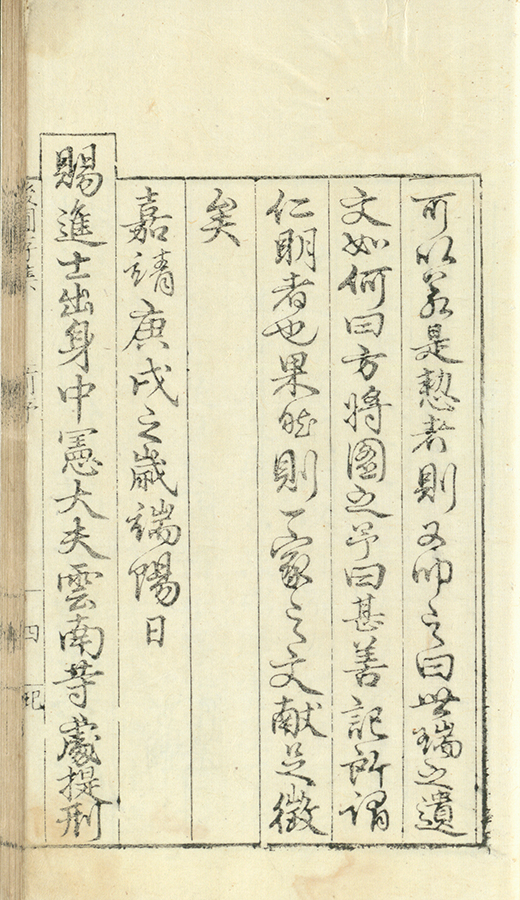 可以若是慤者則又叩之曰世瑞之遺
文如何曰方將圖之予曰甚善記所謂
仁明者也果然則一家之文献足徵
矣
嘉靖庚戌之歲端陽日
賜進士出身中憲大夫雲南等處提刑
四